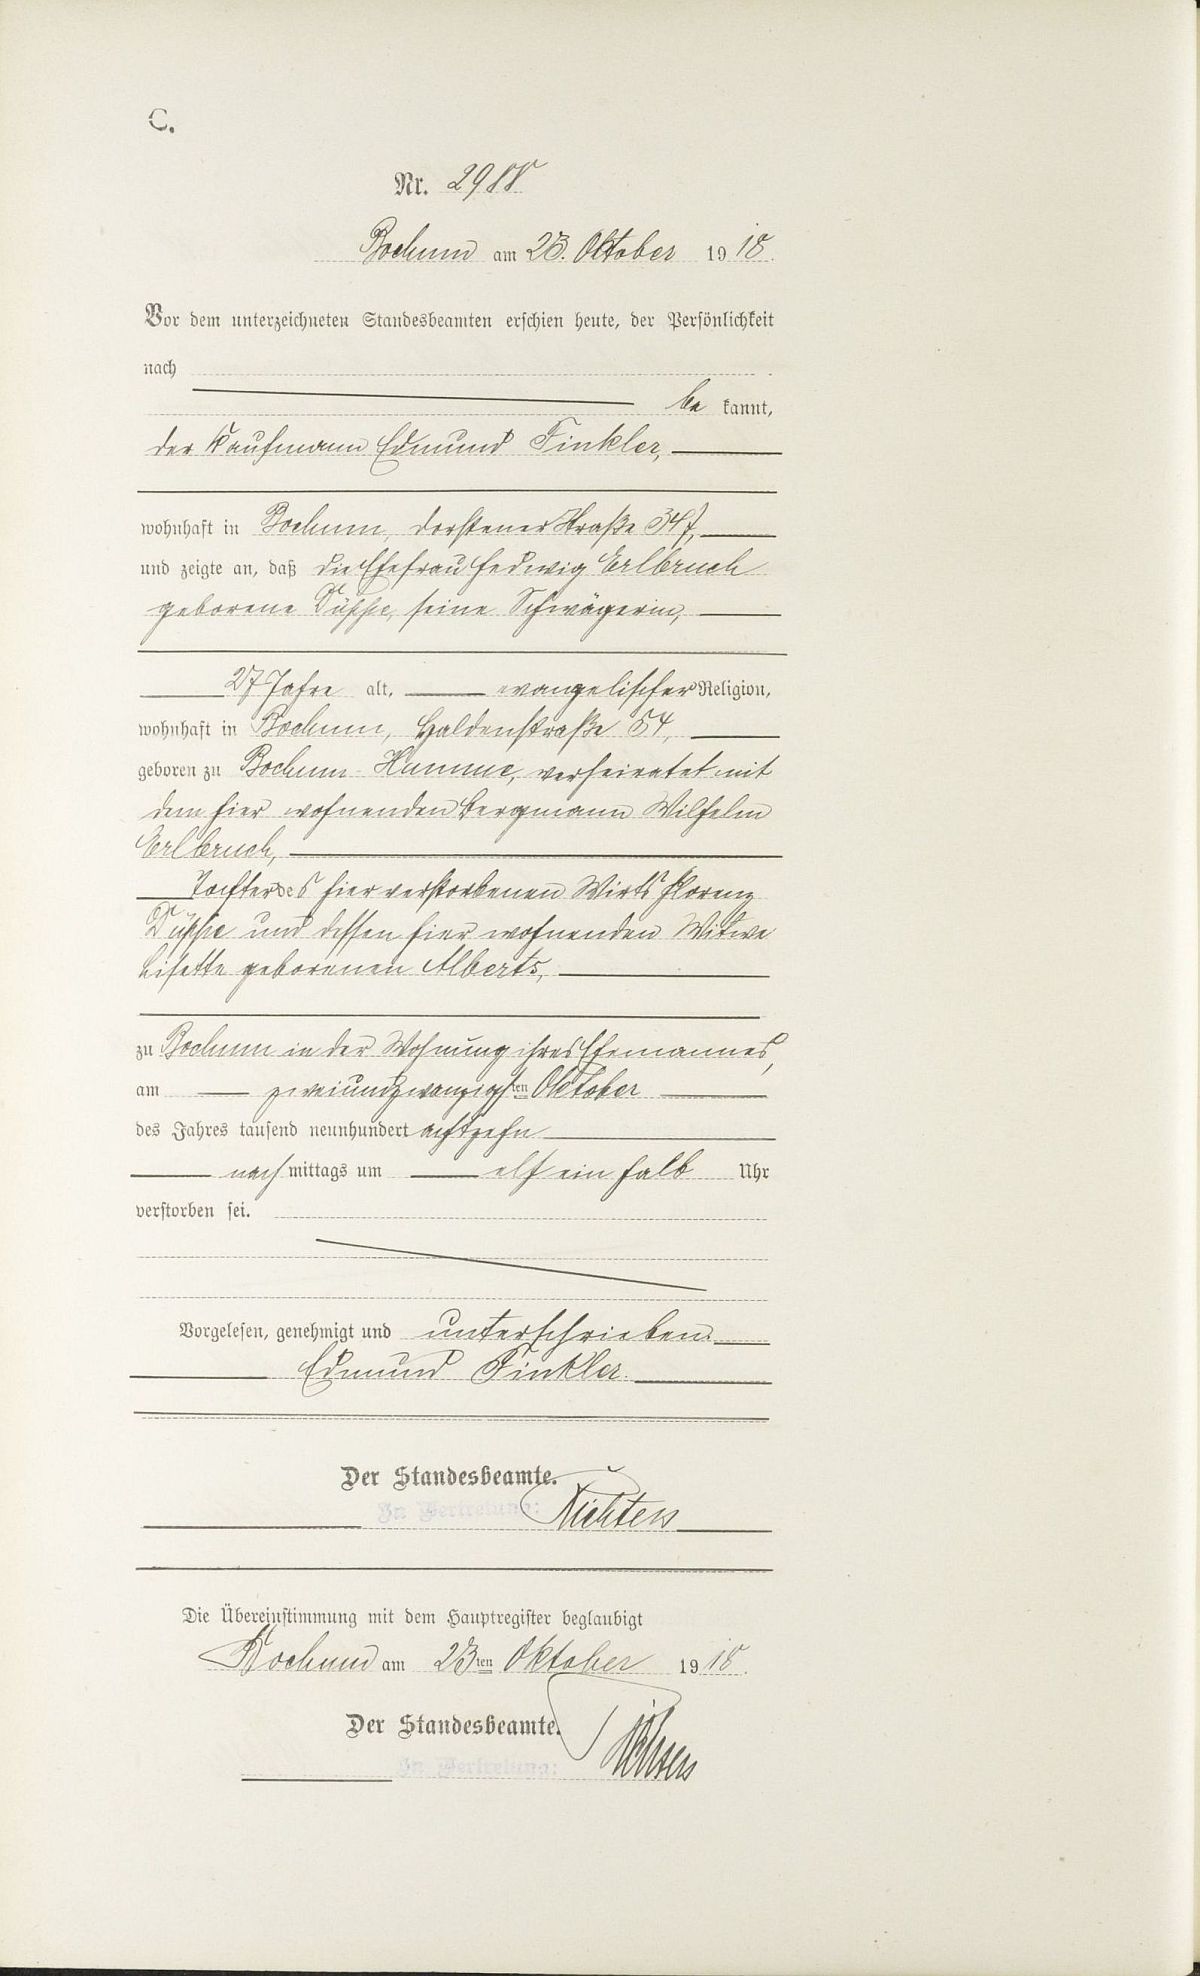 C.
Nr. 2988
Bochum am 23. Oktober 1918.
Vor dem unterzeichneten Standesbeamten erschien heute, der Persönlichkeit
nach
be kannt,
der Kaufmann Edmund Finkler,
wohnhaft in Bochum, Dorstener Straße 347,
und zeigte an, daß die Ehefrau Hedwig Erlbruch
geborene Düppe, seine Schwägerin,
27 Jahre alt, evangelischer Religion,
wohnhaft in Bochum, Haldenstraße 54,
geboren zu Bochum-Hamme, verheiratet mit
dem hier wohnenden Bergmann Wilhelm
Erlbruch,
Tochter des hier verstorbenen Wirts Florenz
Düppe und dessen hier wohnenden Witwe
Lisette geborenen Alberts,
zu Bochum in der Wohnung ihres Ehemannes,
am zweiundzwanzigsten Oktober
des Jahres tausend neunhundert achtzehn
nachmittags um elf ein halb Uhr
verstorben sei.
Vorgelesen, genehmigt und unterschrieben.
Edmund Finkler.
Der Standesbeamte.
In Vertretung:
Die Übereinstimmung mit dem Hauptregister beglaubigt
Bochum am 23ten Oktober 1918.
Der Standesbeamte.
In Vertretung: